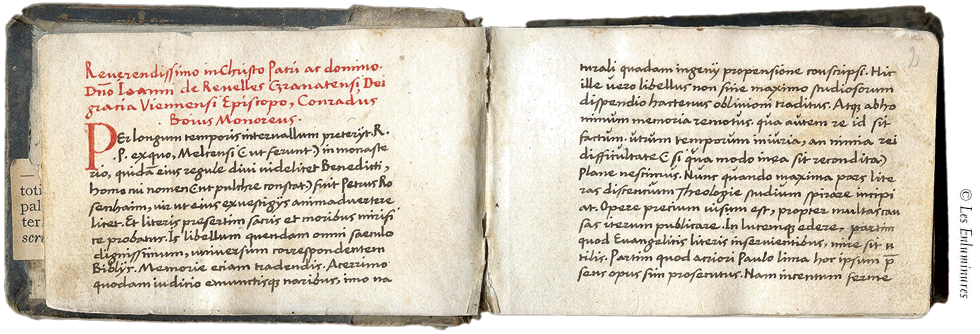 Reverendissimo in Christo Patri ac domino.
Dño Ioanni de Revelles Granatensi Dei
gracia Viennensi Episcopo, Conradus
Boius Monoreus.
PEr longum temporis intervallum preterijt. R.
.P. ex quo, Melcensi (ut ferunt) in monaste
rio, quidã eius regule divi videlicet Benedicti,
homo cui nomen (ut pulchre constat) fuit Petrus Ro
senhaim, vir ut eius ex vestigijs animadvertere
licet. Et literis presertim sacris et moribus mirifi
ce probatus. Is libellum quendam omni saeculo
dignissimum, universum correspondentem
Biblijs. Memorie etiam tradendis. Acerrimo
quodam iudicio emunctisque naribus, imo na
2
turali quadam ingenij propensione conscripsi. Hic
ille vero libellus non sine maximo studiosorum
dispendio hactenus oblivioni traditus. Atq; ab ho
minum memoria remotus. qua autem re id sit
factum. utrum temporum iniuria, an nimia rei
difficultate (si qua modo inea sit recondita)
Plane nescimus. Nunc quando maxima pars lite
ras discentum Theologie studium spirare incipi
at. Opere precium visum est, propter multas cau
sas iterum publicare. In lucemq; edere, partim
quod Evangelicis literis inservientibus, mire sit u
tilis. Partim quod acriori Paulo lima hoc ipsum p
sens opus sim prosecutus. Nam incentum ferme
toti
pal
ter
scri
© Les Enluminures